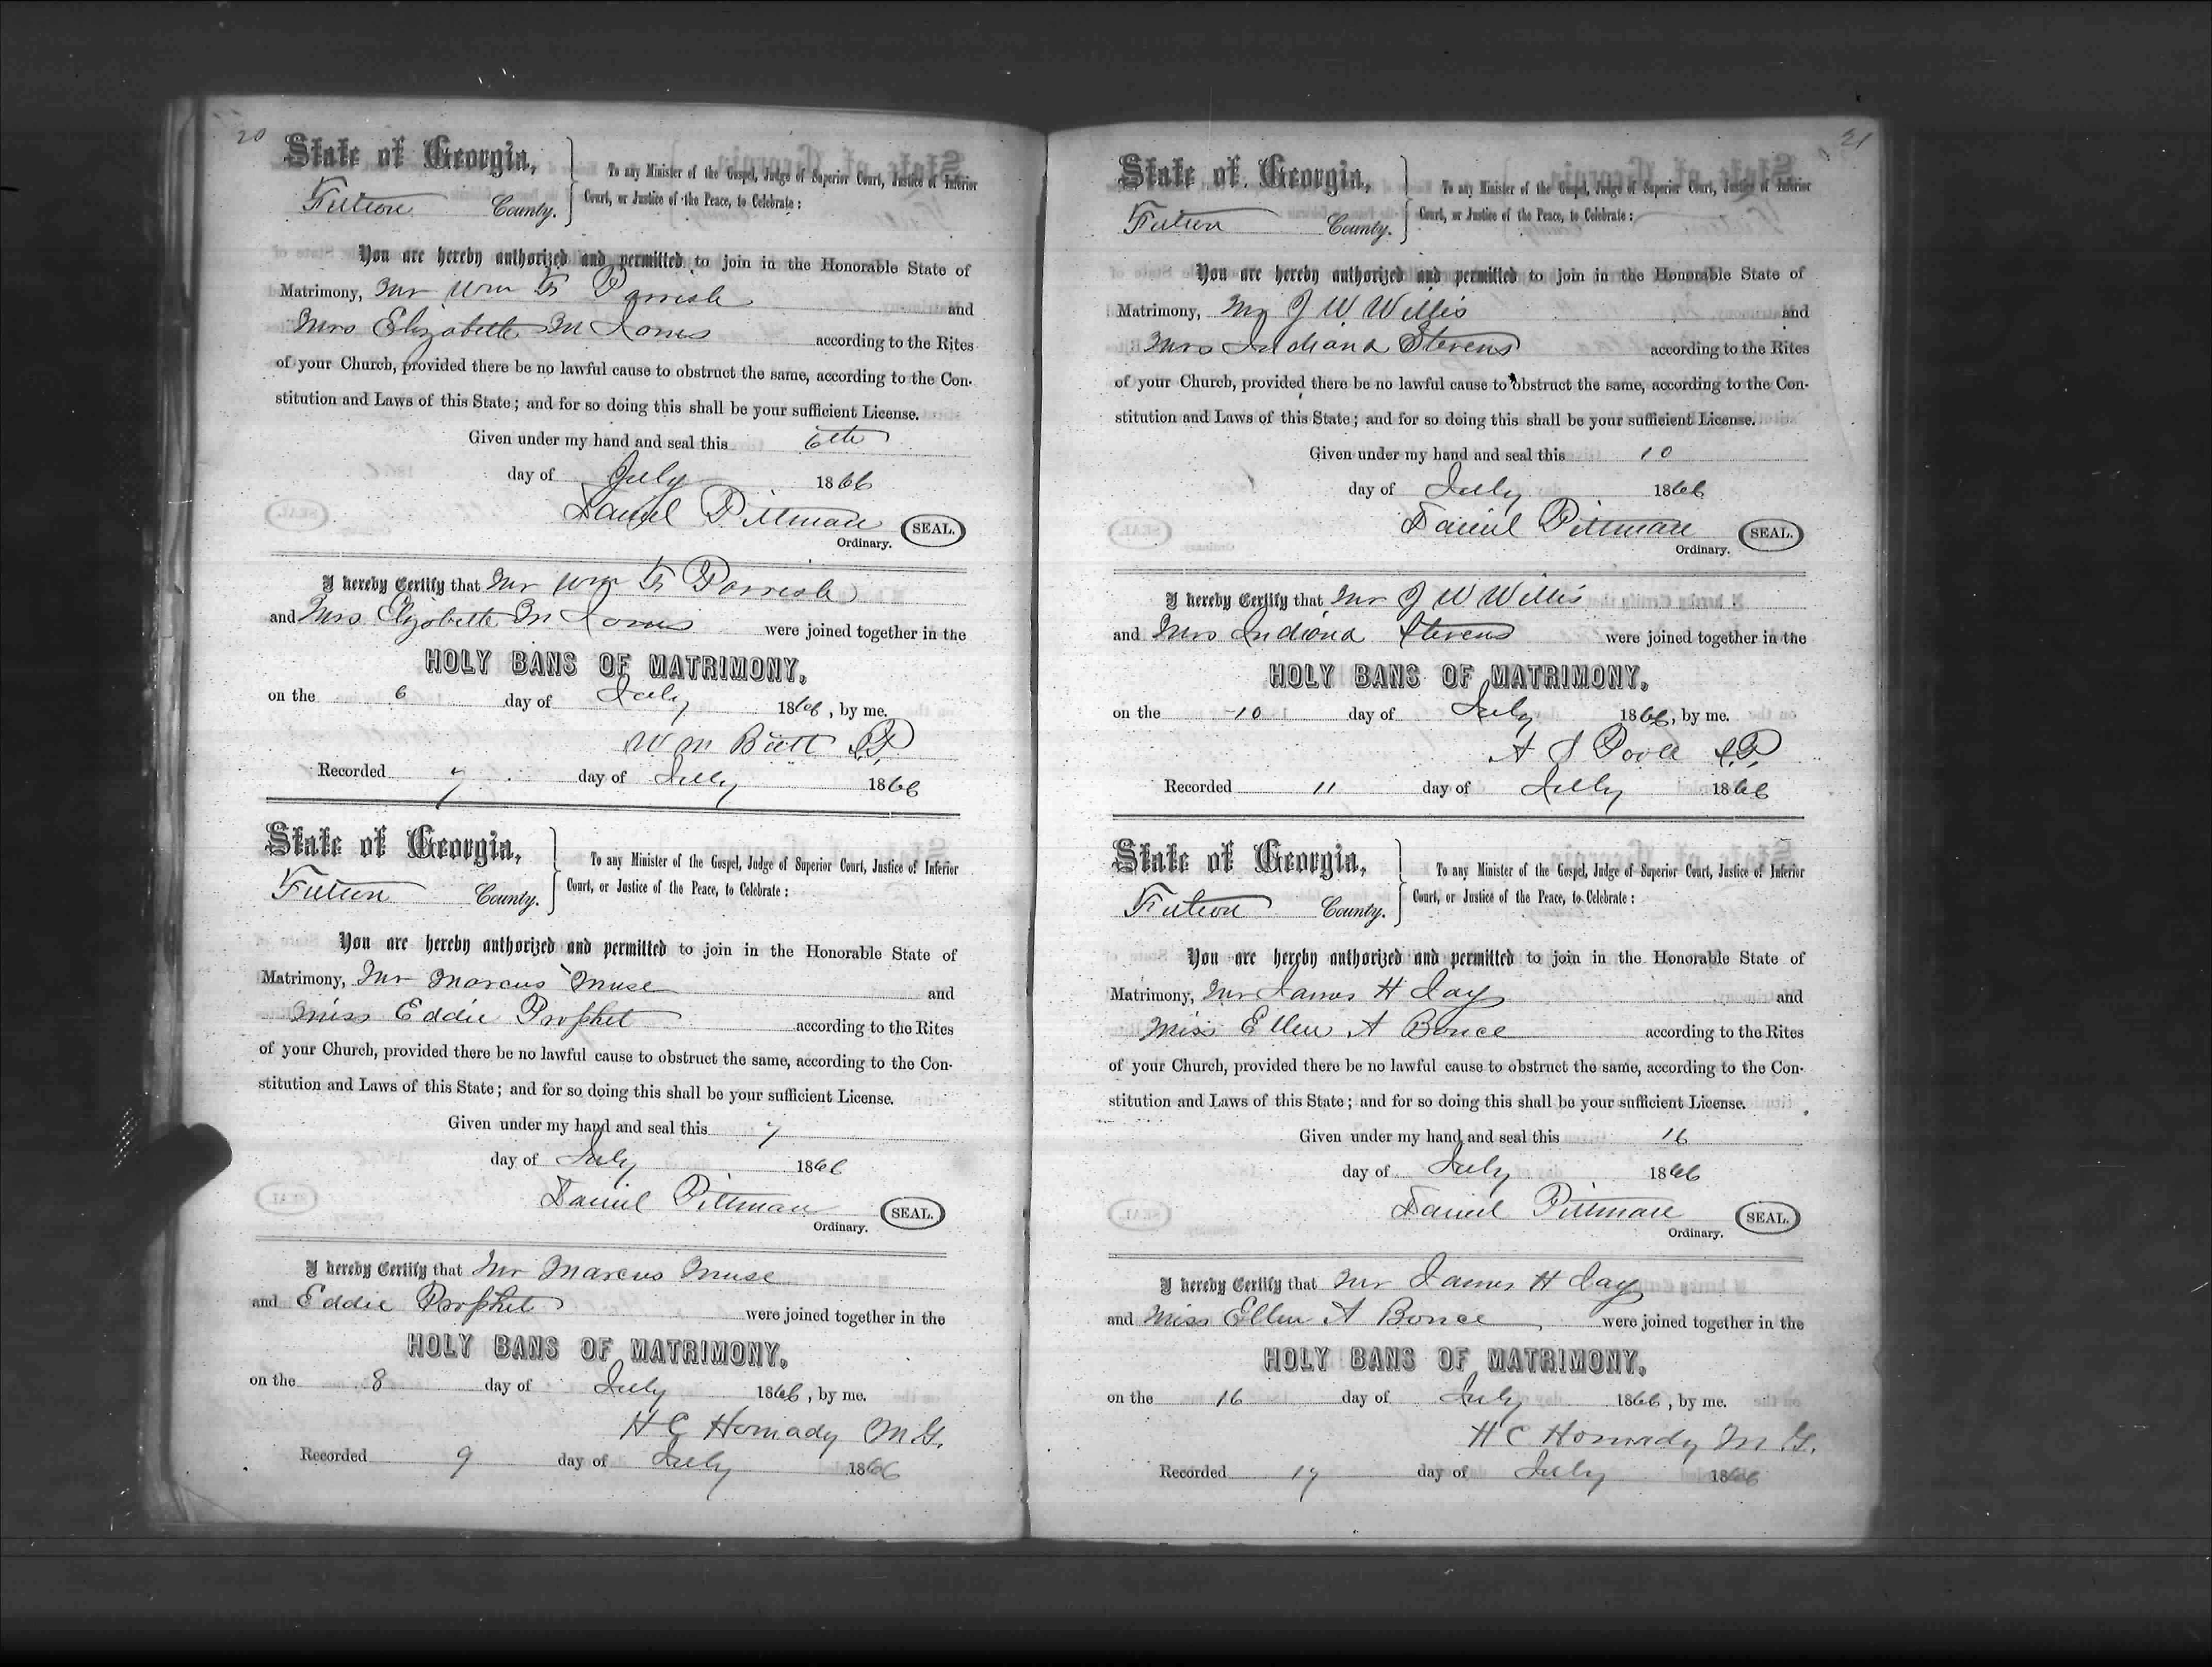 20
State of Georgia,
Fulton County.
To any Minister of the Gospel, Judge of Superior Court, Justice of Inferior
Court, or Justice of the Peace, to Celebrate:
You are hereby authorized and permitted to join in the Honorable State of
Matrimony, Mr Wm F Parrish and
Mrs Elizabeth M Jones according to the Rites
of your Church, provided there be no lawful cause to obstruct the same, according to the Con-
stitution and Laws of this State; and for so doing this shall be your sufficient License.
Given under my hand and seal this 6th
day of July 1866
Daniel Pittman SEAL.
Ordinary.
I hereby Certify that Mr Wm F Parrish
and Mrs Elizabeth M Jones were joined together in the
HOLY BANS OF MATRIMONY,
on the 6 day of July 1866, by me.
W M Butt J.P.
Recorded 7 day of July 1866
State of Georgia,
Fulton County.
To any Minister of the Gospel, Judge of Superior Court, Justice of Inferior
Court, or Justice of the Peace, to Celebrate:
You are hereby authorized and permitted to join in the Honorable State of
Matrimony, Mr Marcus Muse and
Miss Eddie Prophet according to the Rites
of your Church, provided there be no lawful cause to obstruct the same, according to the Con-
stitution and Laws of this State; and for so doing this shall be your sufficient License.
Given under my hand and seal this 7
day of July 1866
Daniel Pittman SEAL.
Ordinary.
I hereby Certify that Mr Marcus Muse
and Eddie Prophet were joined together in the
HOLY BANS OF MATRIMONY,
on the 8 day of July 1866, by me.
H C Hornady M.G.
Recorded 9 day of July 1866
21
State of Georgia,
Fulton County.
To any Minister of the Gospel, Judge of Superior Court, Justice of Inferior
Court, or Justice of the Peace, to Celebrate:
You are hereby authorized and permitted to join in the Honorable State of
Matrimony, Mr J W Willis and
Mrs Indiana Stevens according to the Rites
of your Church, provided there be no lawful cause to obstruct the same, according to the Con-
stitution and Laws of this State; and for so doing this shall be your sufficient License.
Given under my hand and seal this 10
day of July 1866
Daniel Pittman SEAL.
Ordinary.
I hereby Certify that Mr J W Willis
and Mrs Indiana Stevens were joined together in the
HOLY BANS OF MATRIMONY,
on the 10 day of July 1866, by me.
A J Poole J.P.
Recorded 11 day of July 1866
State of Georgia,
Fulton County.
To any Minister of the Gospel, Judge of Superior Court, Justice of Inferior
Court, or Justice of the Peace, to Celebrate:
You are hereby authorized and permitted to join in the Honorable State of
Matrimony, Mr James H Jay and
Miss Ellen A Bonce according to the Rites
of your Church, provided there be no lawful cause to obstruct the same, according to the Con-
stitution and Laws of this State; and for so doing this shall be your sufficient License.
Given under my hand and seal this 16
day of July 1866
Daniel Pittman SEAL.
Ordinary.
I hereby Certify that Mr James H Jay
and Miss Ellen A Bonce were joined together in the
HOLY BANS OF MATRIMONY,
on the 16 day of July 1866, by me.
H C Hornady M.G.
Recorded 17 day of July 1866